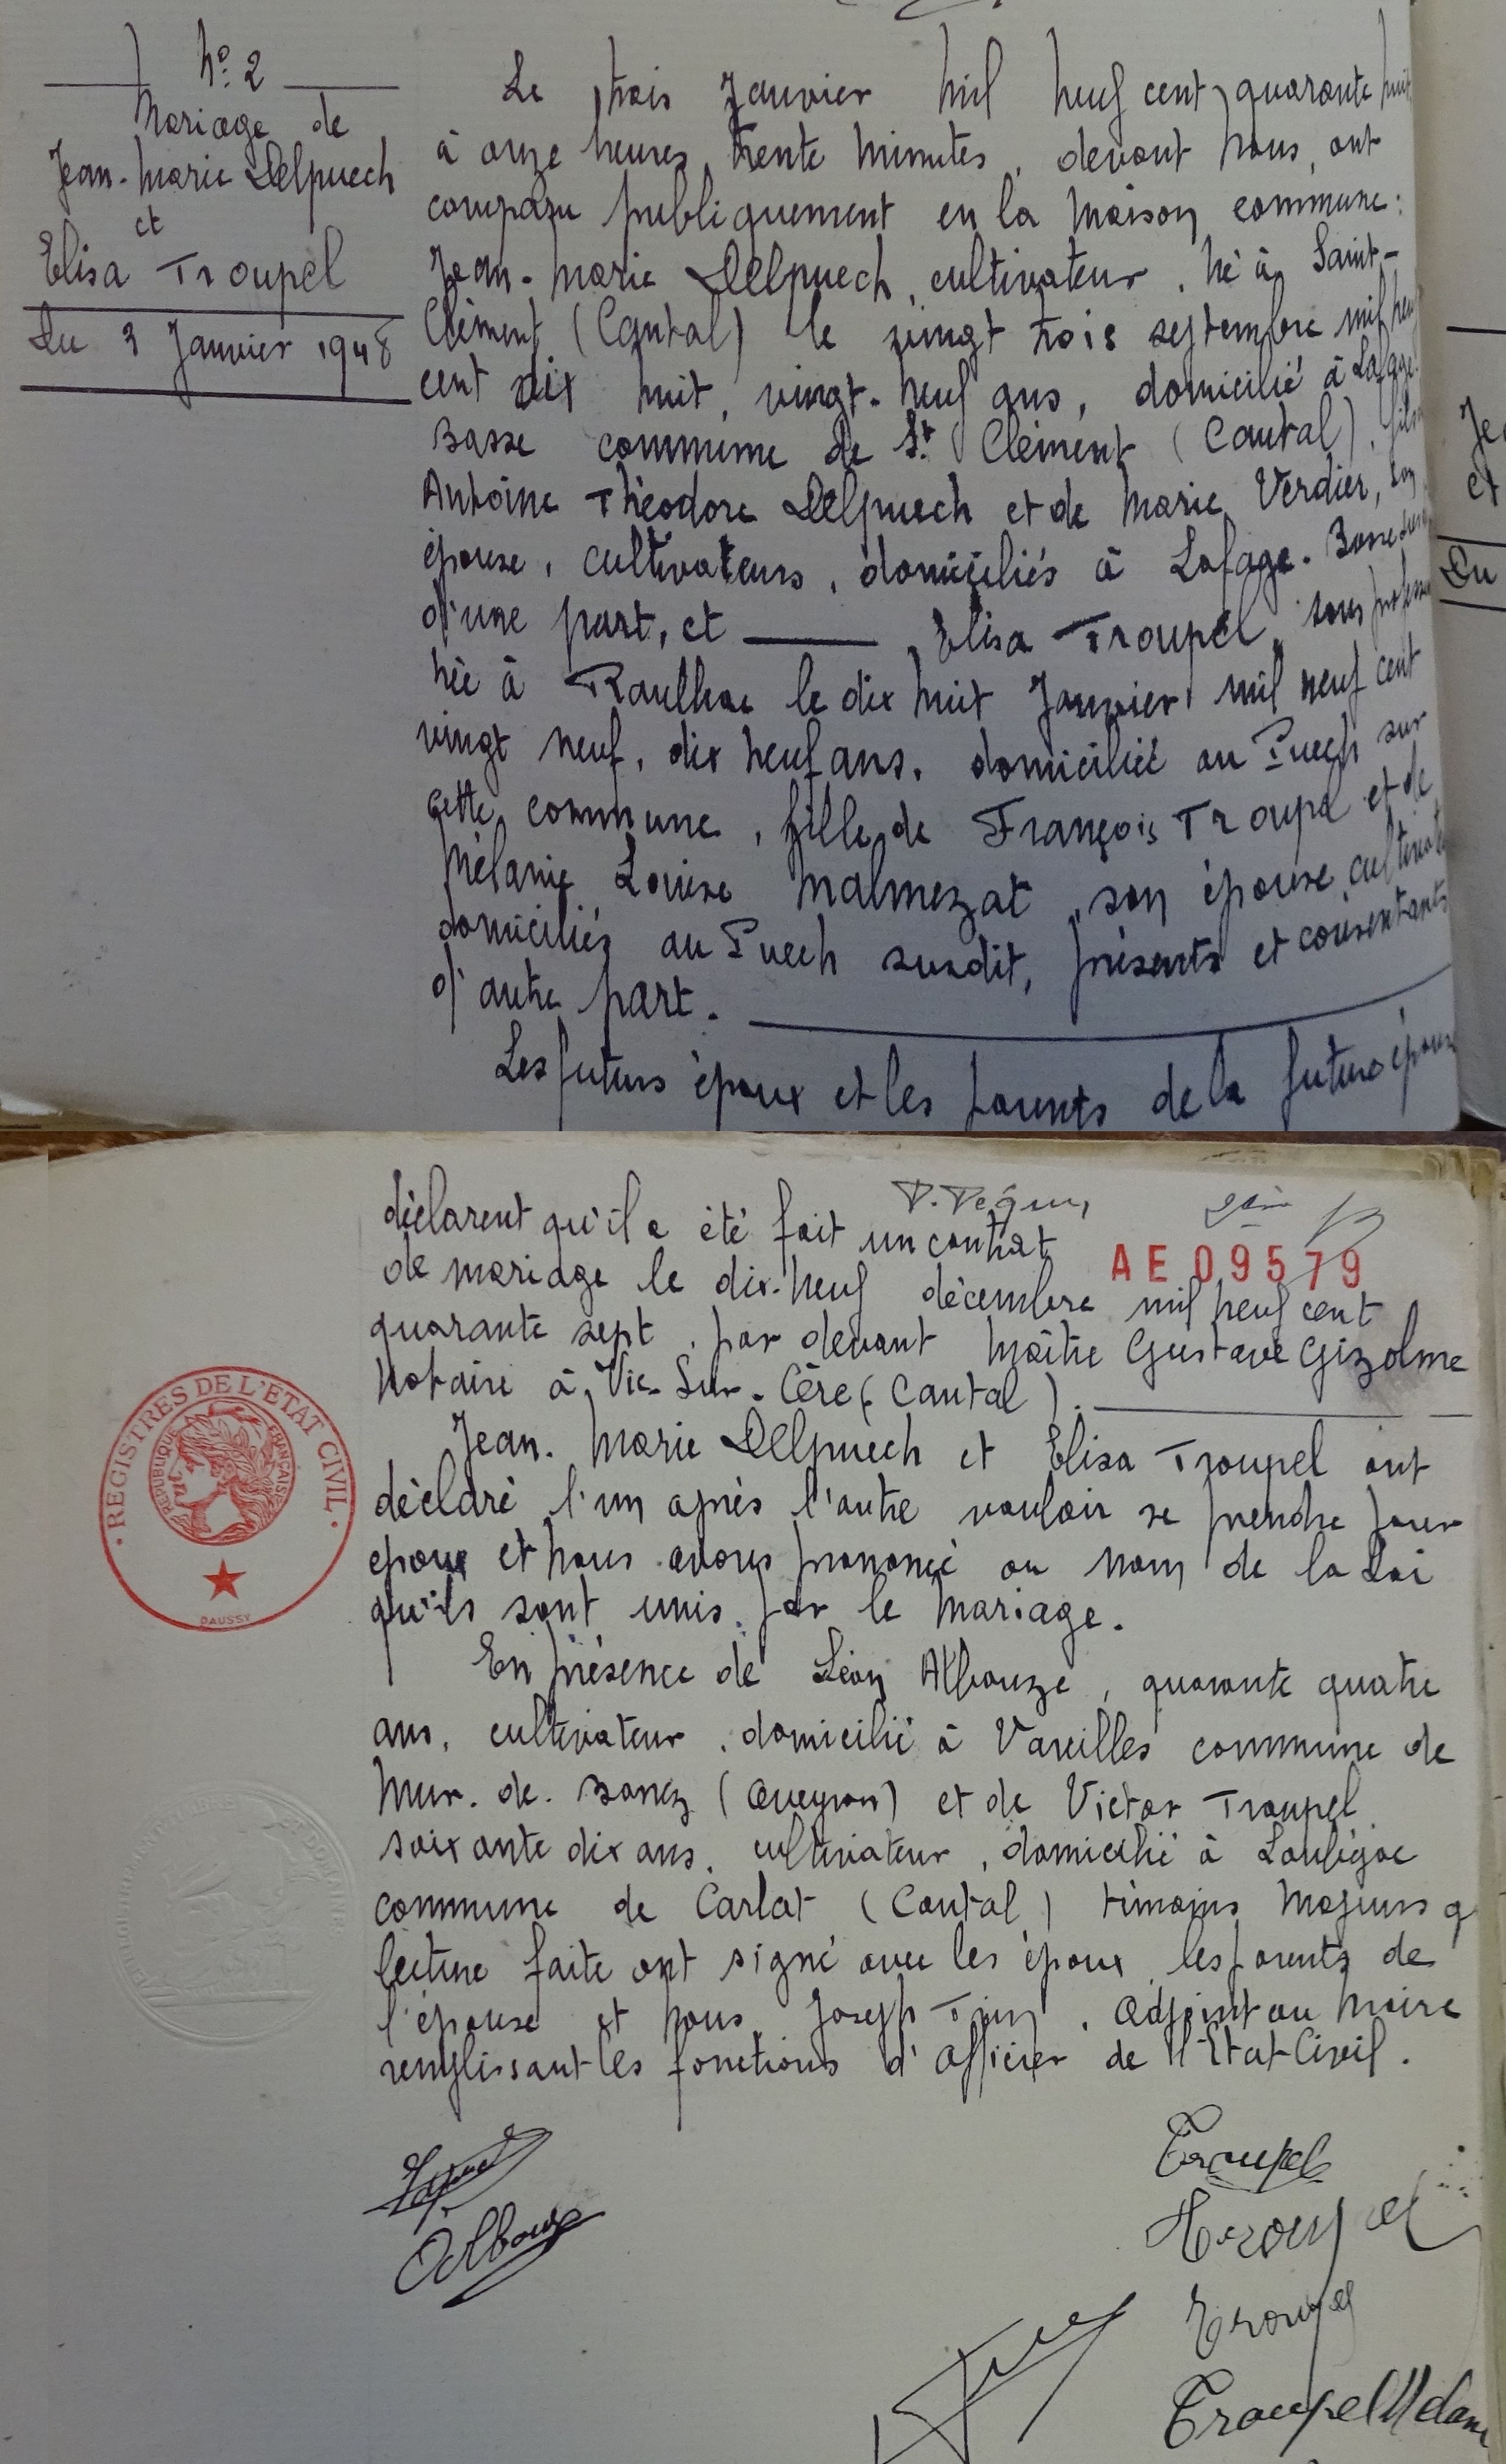 N° 2
Mariage de
Jean-Marie Delpuech
et
Elisa Troupel
Du 3 Janvier 1948
Le trois Janvier mil neuf cent quarante huit
à onze heures trente minutes, devant nous, ont
comparu publiquement en la Maison commune :
Jean-Marie Delpuech, cultivateur, né à Saint-
Clément (Cantal) le vingt trois septembre mil neuf
cent dix huit, vingt-neuf ans, domicilié à Lafage-
Basse commune de St Clément (Cantal), fils
Antoine Théodore Delpuech et de Marie Verdier, son
épouse, cultivateurs, domiciliés à Lafage-Basse
d'une part, et Elisa Troupel, sans profession
née à Raulhac le dix huit Janvier mil neuf cent
vingt neuf, dix neuf ans, domiciliée au Puech sur
cette commune, fille de François Troupel et de
Mélanie Louise Malmezat, son épouse, cultivateurs
domiciliés au Puech susdit, présents et consentants
d'autre part.
Les futurs époux et les parents de la future épouse
Je
et
Du
déclarent qu'il a été fait un contrat
2ème
AE 09579
de mariage le dix-neuf décembre mil neuf cent
quarante sept, par devant Maître Gustave Gizolme
Notaire à Vic-Sur-Cère (Cantal).
Jean-Marie Delpuech et Elisa Troupel ont
déclaré l'un après l'autre vouloir se prendre pour
époux et nous avons prononcé au nom de la Loi
qu'ils sont unis par le Mariage.
En présence de Léon Albouze, quarante quatre
ans, cultivateur, domicilié à Vareilles commune de
Mur-de-Barrez (Aveyron) et de Victor Troupel
soixante dix ans, cultivateur, domicilié à Loubéjac
commune de Carlat (Cantal) témoins Majeurs q
lecture faite ont signé avec les époux, les parents de
l'épouse et nous, Joseph, Adjoint au Maire
remplissant les fonctions d'Officier de l'Etat Civil.
REGISTRES DE L'ÉTAT CIVIL
RÉPUBLIQUE FRANÇAISE
DAUSSY
Albouze
Troupel
Troupel
Troupel
Troupel